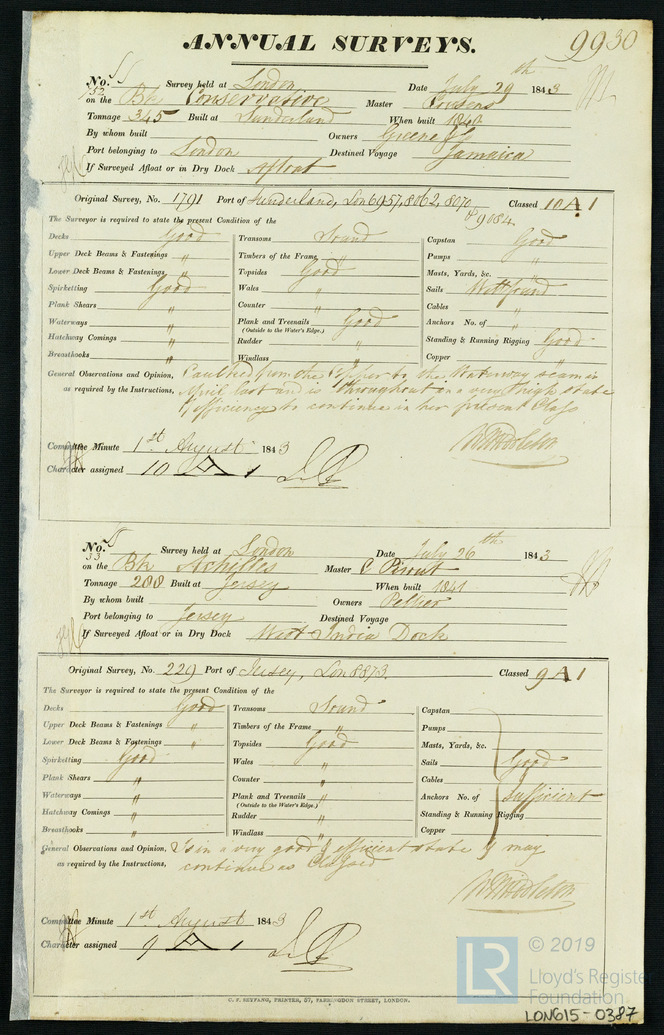 ANNUAL SURVEYS.
9930
No. 752 Survey held at London Date July 29th 1843
on the Bk Conservative Master Cousens
Tonnage 345 Built at Sunderland When built 1840
By whom built Owners Greene & Co
Port belonging to London Destined Voyage Jamaica
If Surveyed Afloat or in Dry Dock Afloat
Original Survey, No. 1791 Port of Sunderland, Lon 6957, 8062, 8070 & 9084 Classed 10 A 1
The Surveyor is required to state the present Condition of the
Decks Good Transoms Sound Capstan Good
Upper Deck Beams & Fastenings " Timbers of the Frame " Pumps "
Lower Deck Beams & Fastenings " Topsides Good Masts, Yards, &c. "
Spirketting Good Wales " Sails Well found
Plank Shears " Counter " Cables "
Waterways " Plank and Treenails Good Anchors No. of "
(Outside to the Water's Edge.)
Hatchway Comings " Rudder " Standing & Running Rigging Good
Breasthooks " Windlass " Copper "
General Observations and Opinion, Caulked from the Copper to the Waterway seam in
as required by the Instructions, April last and is throughout in a very high state
of efficiency to continue in her present Class
W Middleton
Committee Minute 1st August 1843
Character assigned 10 A 1
No. 33 Survey held at London Date July 26th 1843
on the Bk Achilles Master C Pirout
Tonnage 288 Built at Jersey When built 1841
By whom built Owners Pellier
Port belonging to Jersey Destined Voyage
If Surveyed Afloat or in Dry Dock West India Dock
Original Survey, No. 229 Port of Jersey, Lon 8873. Classed 9 A 1
The Surveyor is required to state the present Condition of the
Decks Good Transoms Sound Capstan
Upper Deck Beams & Fastenings " Timbers of the Frame " Pumps
Lower Deck Beams & Fastenings " Topsides Good Masts, Yards, &c.
Spirketting Good Wales " Sails Good
Plank Shears " Counter " Cables
Waterways " Plank and Treenails " Anchors No. of Sufficient
(Outside to the Water's Edge.)
Hatchway Comings " Rudder " Standing & Running Rigging
Breasthooks " Windlass " Copper
General Observations and Opinion, Is in a very good & efficient state & may
as required by the Instructions, continue as Classed
W Middleton
Committee Minute 1st August 1843
Character assigned 9 A 1
C. F. SEYFANG, PRINTER, 57, FARRINGDON STREET, LONDON.
LR © 2019
Lloyd's Register
Foundation
LON615-0387